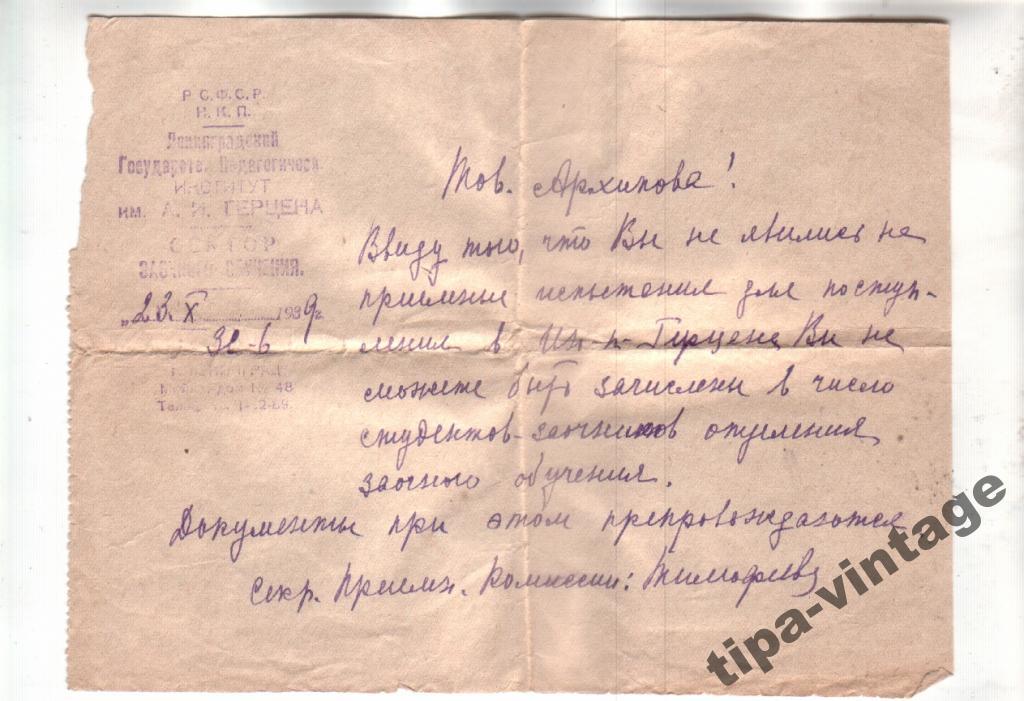 Р.С.Ф.С.Р.
Н.К.П.
Ленинградский
Государств. Педагогическ.
ИНСТИТУТ
им. А. И. ГЕРЦЕНА
СЕКТОР
ЗАОЧНОГО ОБУЧЕНИЯ.
„23. X 1939 г.
32-6
48
Тов. Архипова!
Ввиду того, что Вы не явились на
приемные испытания для поступ-
ления в Ин-т Герцена Вы не
сможете быть зачислены в число
студентов-заочников отделения
заочного обучения.
Документы при этом препровождаются
Секр. Приемн. Комиссии: Тимофеева
tipa-vintage